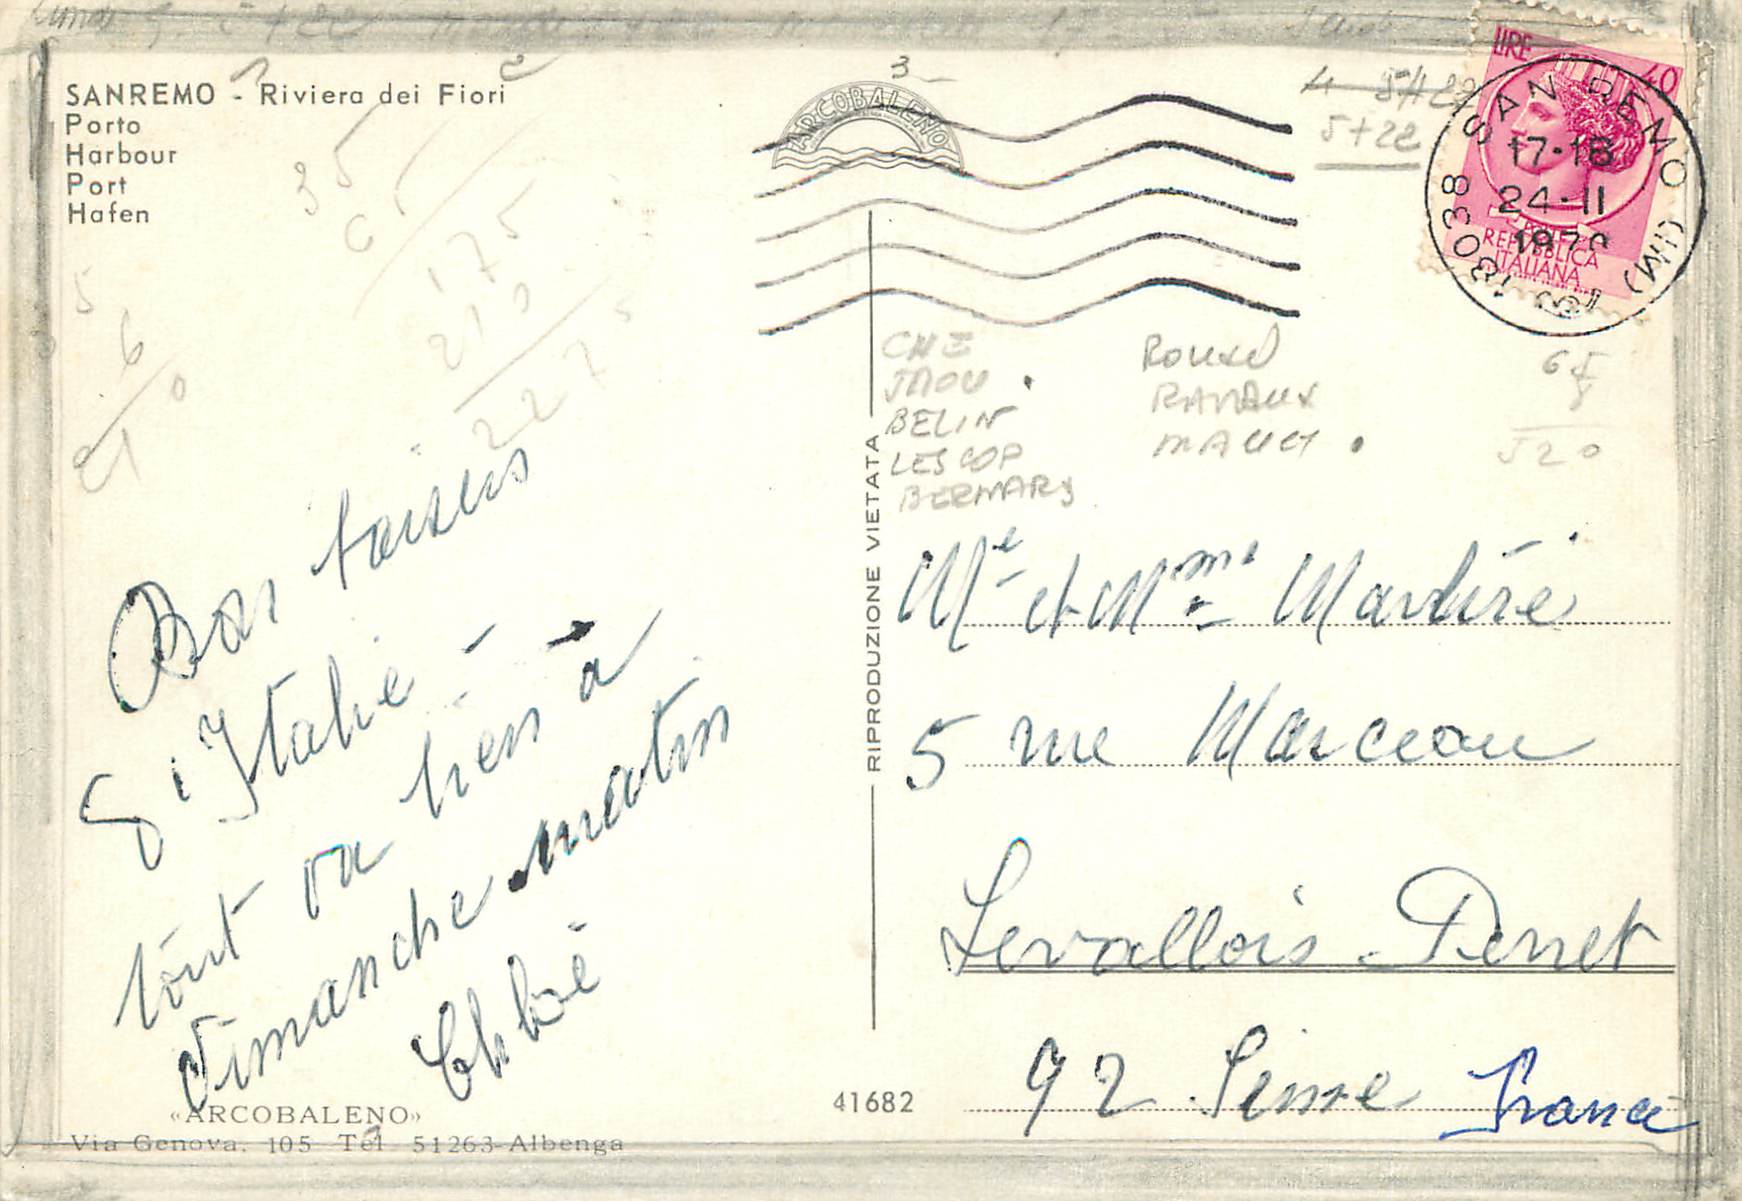 SANREMO - Riviera dei Fiori
Porto
Harbour
Port
Hafen
3
ARCOBALENO
5+22
LIRE 40
REPUBBLICA
ITALIANA
SAN REMO (IM)
18038
17-18
24-11
35
6
175
210
2275
5
6
BELIN
LESCOP
BERNARD
520
Bons baisers
d'Italie -
tout va bien à
dimanche matin
Chloé
RIPRODUZIONE VIETATA
Mr et Mme
5 rue Marceau
Levallois-Perret
92 Seine France
«ARCOBALENO»
Via Genova, 105 Tel 51263-Albenga
41682